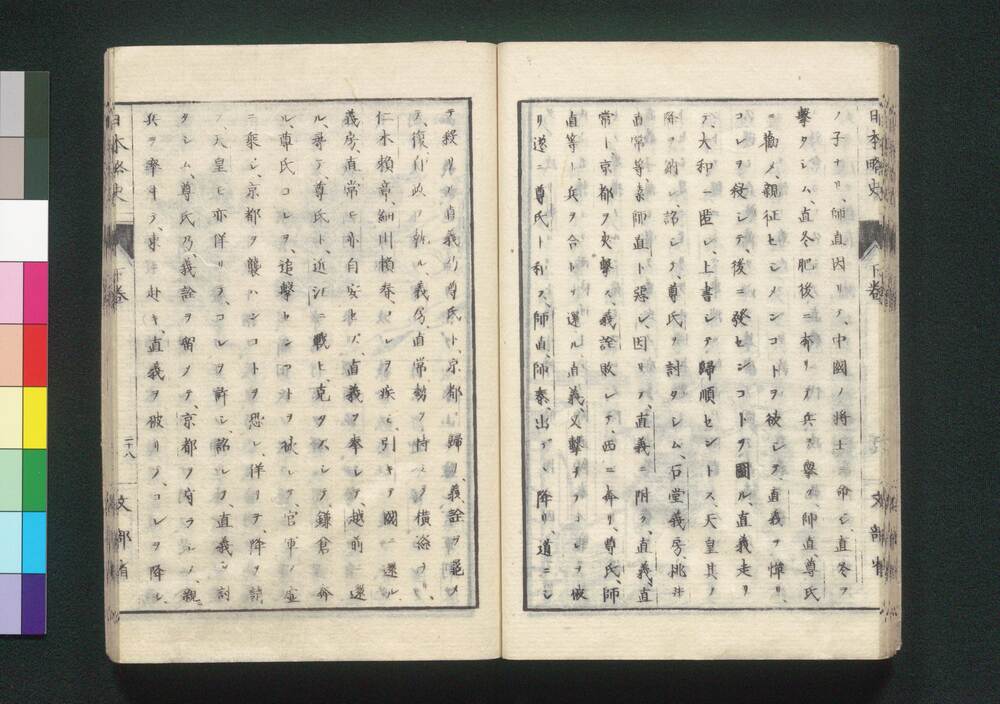 日本略史
下巻
文部省
ノ子ナリ、師直因リテ、中國ノ將士ニ命シ、直冬ヲ
撃タシム、直冬肥後ニ奔リテ兵ヲ擧ク、師直、尊氏
ニ勸メ、親征セシメンコトヲ
コレヲ殺シテ、後ニ發センコトヲ圖ル、直義走リ
テ、大和ニ匿レ、上書シテ歸順セントス、天皇其ノ
詔シテ、尊氏ヲ討タシム、石堂義房、桃井
直常等、素師直ト惡シ、因リテ、直義ニ附ク、直義、直
常ト京都ヲ夾撃ス、義詮敗レテ、西ニ奔リ、尊氏、師
直等ト兵ヲ合シテ還ル、直義又撃チテ
リ、遂ニ尊氏ト和ス、師直、師泰、出デヽ降リ、道ニシ
テ殺サル、直義乃尊氏ト、京都ニ歸リ、義詮ヲ
復自政ヲ執ル、義房、直常勢ヲ恃ミテ横
仁木頼章、細川頼春、コレヲ疾ミ、引キテ國ニ還ル、
義房、直常モ亦自安セズ、直義ヲ奉シテ、越前ニ還
ル、尋デ、尊氏ト近江ニ戰ヒ、克タズシテ、鎌倉ニ奔
ル、尊氏コレヲ追撃セント
ニ乘シ、京都ヲ襲ハンコトヲ恐レ、佯リテ、降ヲ請
フ、天皇モ亦佯リテ、コレヲ許シ、詔シテ、直義ヲ討
タシム、尊氏乃義詮ヲ留メテ、京都ヲ守ラシメ、親
兵ヲ率井テ、東ニ赴キ、直義ヲ破リテ、コレヲ降シ、
日本略史
下巻
二十八
文部省